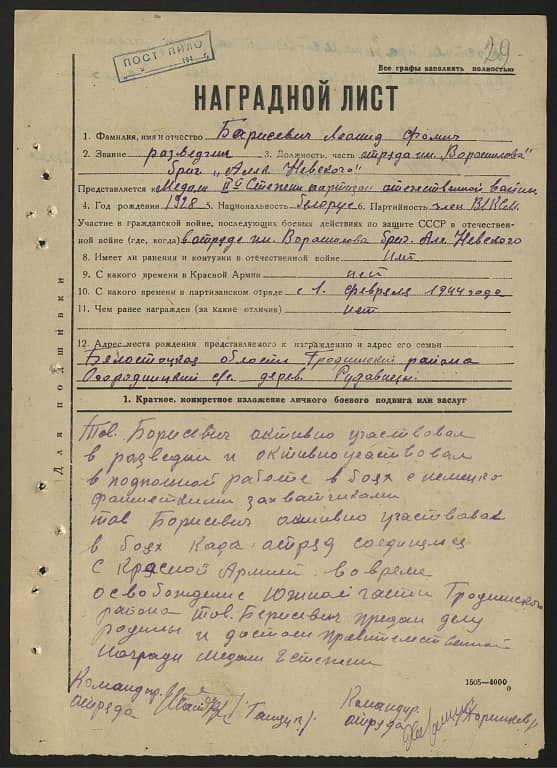 29
ПОСТУПИЛО
Все графы заполнять полностью
НАГРАДНОЙ ЛИСТ
1. Фамилия, имя и отчество Борисевич Леонид Фомич
2. Звание разведчик 3. Должность, часть отряда им. „Ворошилова"
бриг „Алек Невского"
Представляется к Медали II й Степени партизан отечественной войны
4. Год рождения 1928 5. Национальность белорус 6. Партийность член ВЛКСМ
Участие в гражданской войне, последующих боевых действиях по защите СССР в отечествен-
ной войне (где, когда) в отряде им. Ворошилова бриг. Алек. Невского
8. Имеет ли ранения и контузки в отечественной войне нет
9. С какого времени в Красной Армии нет
10. С какого времени в партизанском отряде с 1. февраля 1944 года
11. Чем ранее награжден (за какие отличия) нет
12. Адрес места рождения представляемого к награждению и адрес его семьи
Белостоцкая области Гродненский района
с/с. дерев.
Для подшивки
1. Краткое, конкретное изложение личного боевого подвига или заслуг
Тов. Борисевич активно участвовал
в разведки и активно участвовал
в подполной работе в боях с немецко
фашисткими захватчиками
тов Борисевич активно участвовал
в боях када отряд соединился
с Красной Армией во время
освобождение Южной части Гродненского
района Тов. Борисевич предан делу
родины и достоен правительственной
награди медали 2 степени
Командир
отряда
Командир
отряда
1505—4000